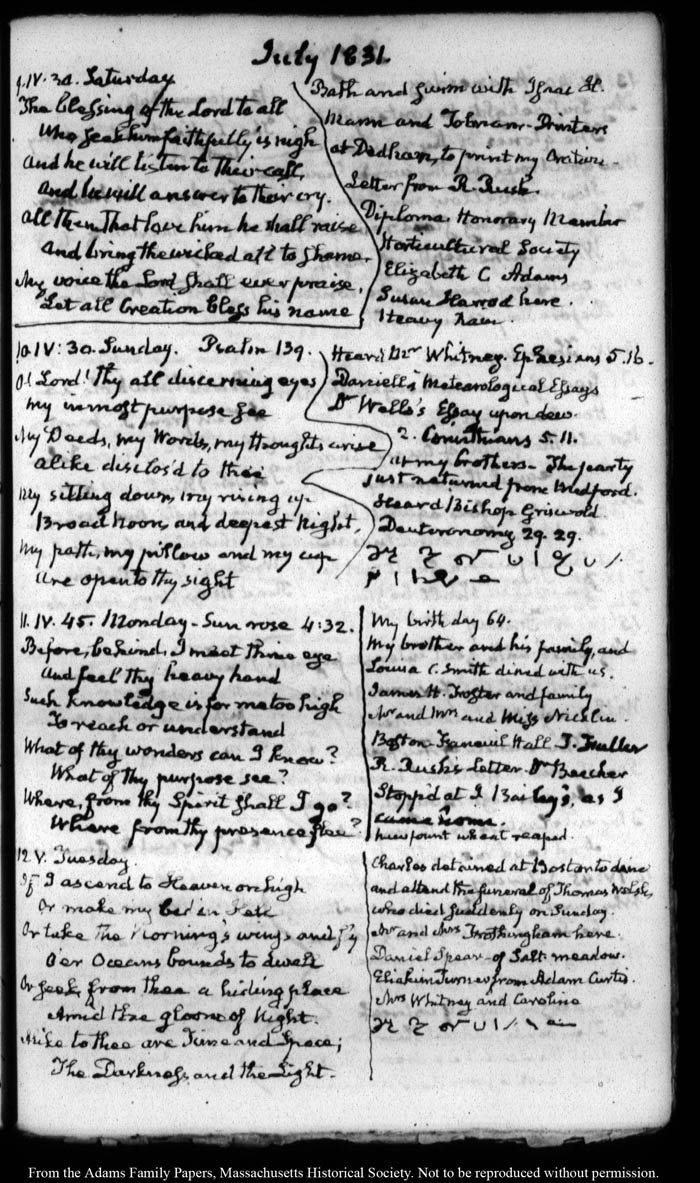 July 1831.
9. IV. 30. Saturday
The blessing of the Lord to all
Who seek him faithfully is nigh
And he will listen to their call,
And he will answer to their cry.
All them that love him he shall raise
And bring the wicked all to shame.
My voice the Lord shall ever praise,
Let all Creation bless his name
Bath and swim with Isaac H.
Mann and Tolman - Printers
at Dedham, to print my Oration -
Letter from R. Rush.
Diploma Honorary Member
Horticultural Society
Elizabeth C Adams
Susan Harrod here.
Heavy rain.
10. IV: 30. Sunday. Psalm 139.
O! Lord! thy all discerning eyes
My inmost purpose see
My Deeds, my Words, my thoughts arise
Alike disclos'd to thee
My sitting down, my rising up
Broad Noon, and deepest Night,
My path, my pillow and my cup
Are open to thy sight
Heard Mr Whitney. Ephesians 5.16.
Daniell's Meteorological Essays
Dr Wells's Essay upon dew.
2. Corinthians 5. 11.
at my brothers - The party
just returned from Medford.
Heard Bishop Griswold
Deuteronomy 29. 29.
11. IV. 45. Monday - Sun rose 4:32.
Before, behind, I meet thine eye
And feel thy heavy hand
Such knowledge is for me too high
To reach or understand
What of thy wonders can I know?
What of thy purpose see?
Where, from thy Spirit shall I go?
Where from thy presence flee?
My birth day 64.
My brother and his family, and
Louisa C. Smith dined with us.
James H. Foster and family
Mr and Mrs and Miss Nicklin.
Boston Faneuil Hall T. Fuller
R. Rush's Letter. Dr Beecher
Stopp'd at I Bailey's, as I
came home.
wheat reaped.
12. V. Tuesday.
If I ascend to Heaven on high
Or make my bed in Hell
Or take the Morning's wings and fly
O'er Oceans bounds to dwell
Or seek from thee a hiding place
Amid the gloom of Night.
Alike to thee are Time and Space;
The Darkness and the Light.
Charles detained at Boston to dine
and attend the funeral of Thomas Welsh,
who died suddenly on Sunday.
Mr and Mrs Frothingham here.
Daniel Spear - of Salt meadow.
Eliakim Turner from Adam Curtis.
Mrs Whitney and Caroline
From the Adams Family Papers, Massachusetts Historical Society. Not to be reproduced without permission.